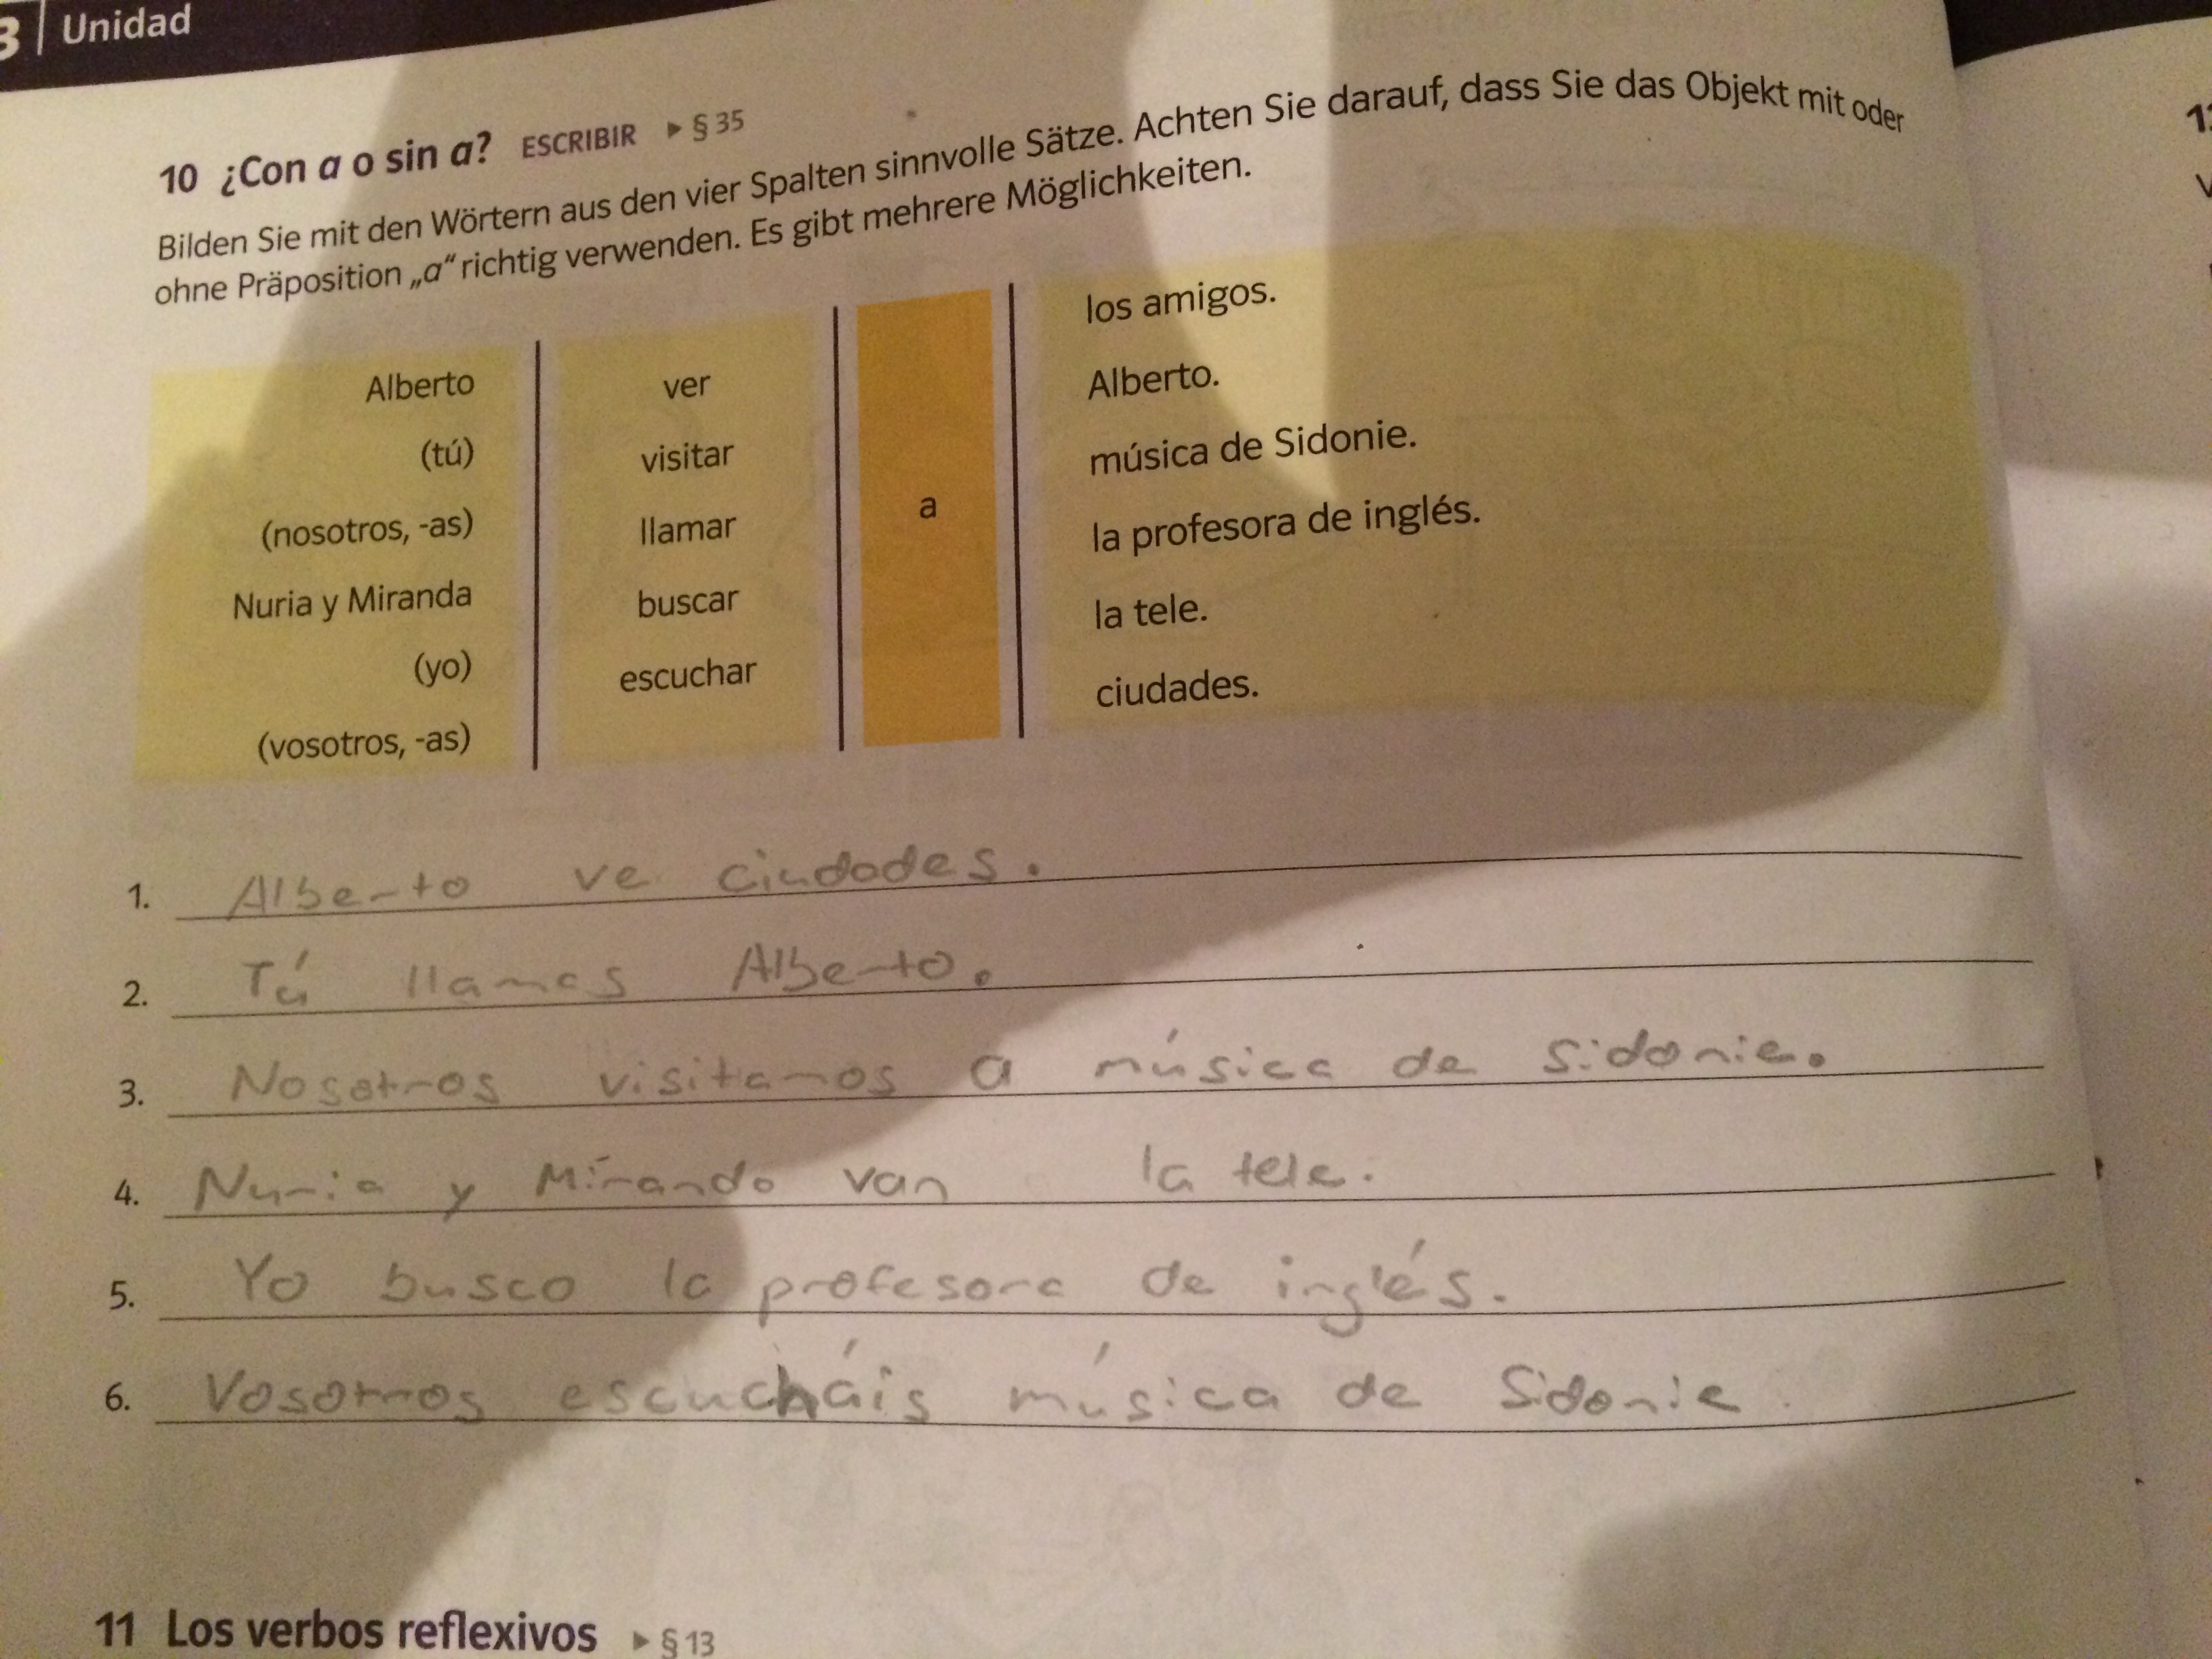 3 | Unidad
10 ¿Con a o sin a? ESCRIBIR ▶ § 35
Bilden Sie mit den Wörtern aus den vier Spalten sinnvolle Sätze. Achten Sie darauf, dass Sie das Objekt mit oder
ohne Präposition „a“ richtig verwenden. Es gibt mehrere Möglichkeiten.
Alberto
(tú)
(nosotros, -as)
Nuria y Miranda
(yo)
(vosotros, -as)
ver
visitar
llamar
buscar
escuchar
a
los amigos.
Alberto.
música de Sidonie.
la profesora de inglés.
la tele.
ciudades.
1. Alberto ve ciudades.
2. Tú llamas Alberto.
3. Nosotros visitamos a música de Sidonie.
4. Nuria y Mirando van la tele.
5. Yo busco la profesora de inglés.
6. Vosotros escucháis música de Sidonie.
11 Los verbos reflexivos ▶ § 13